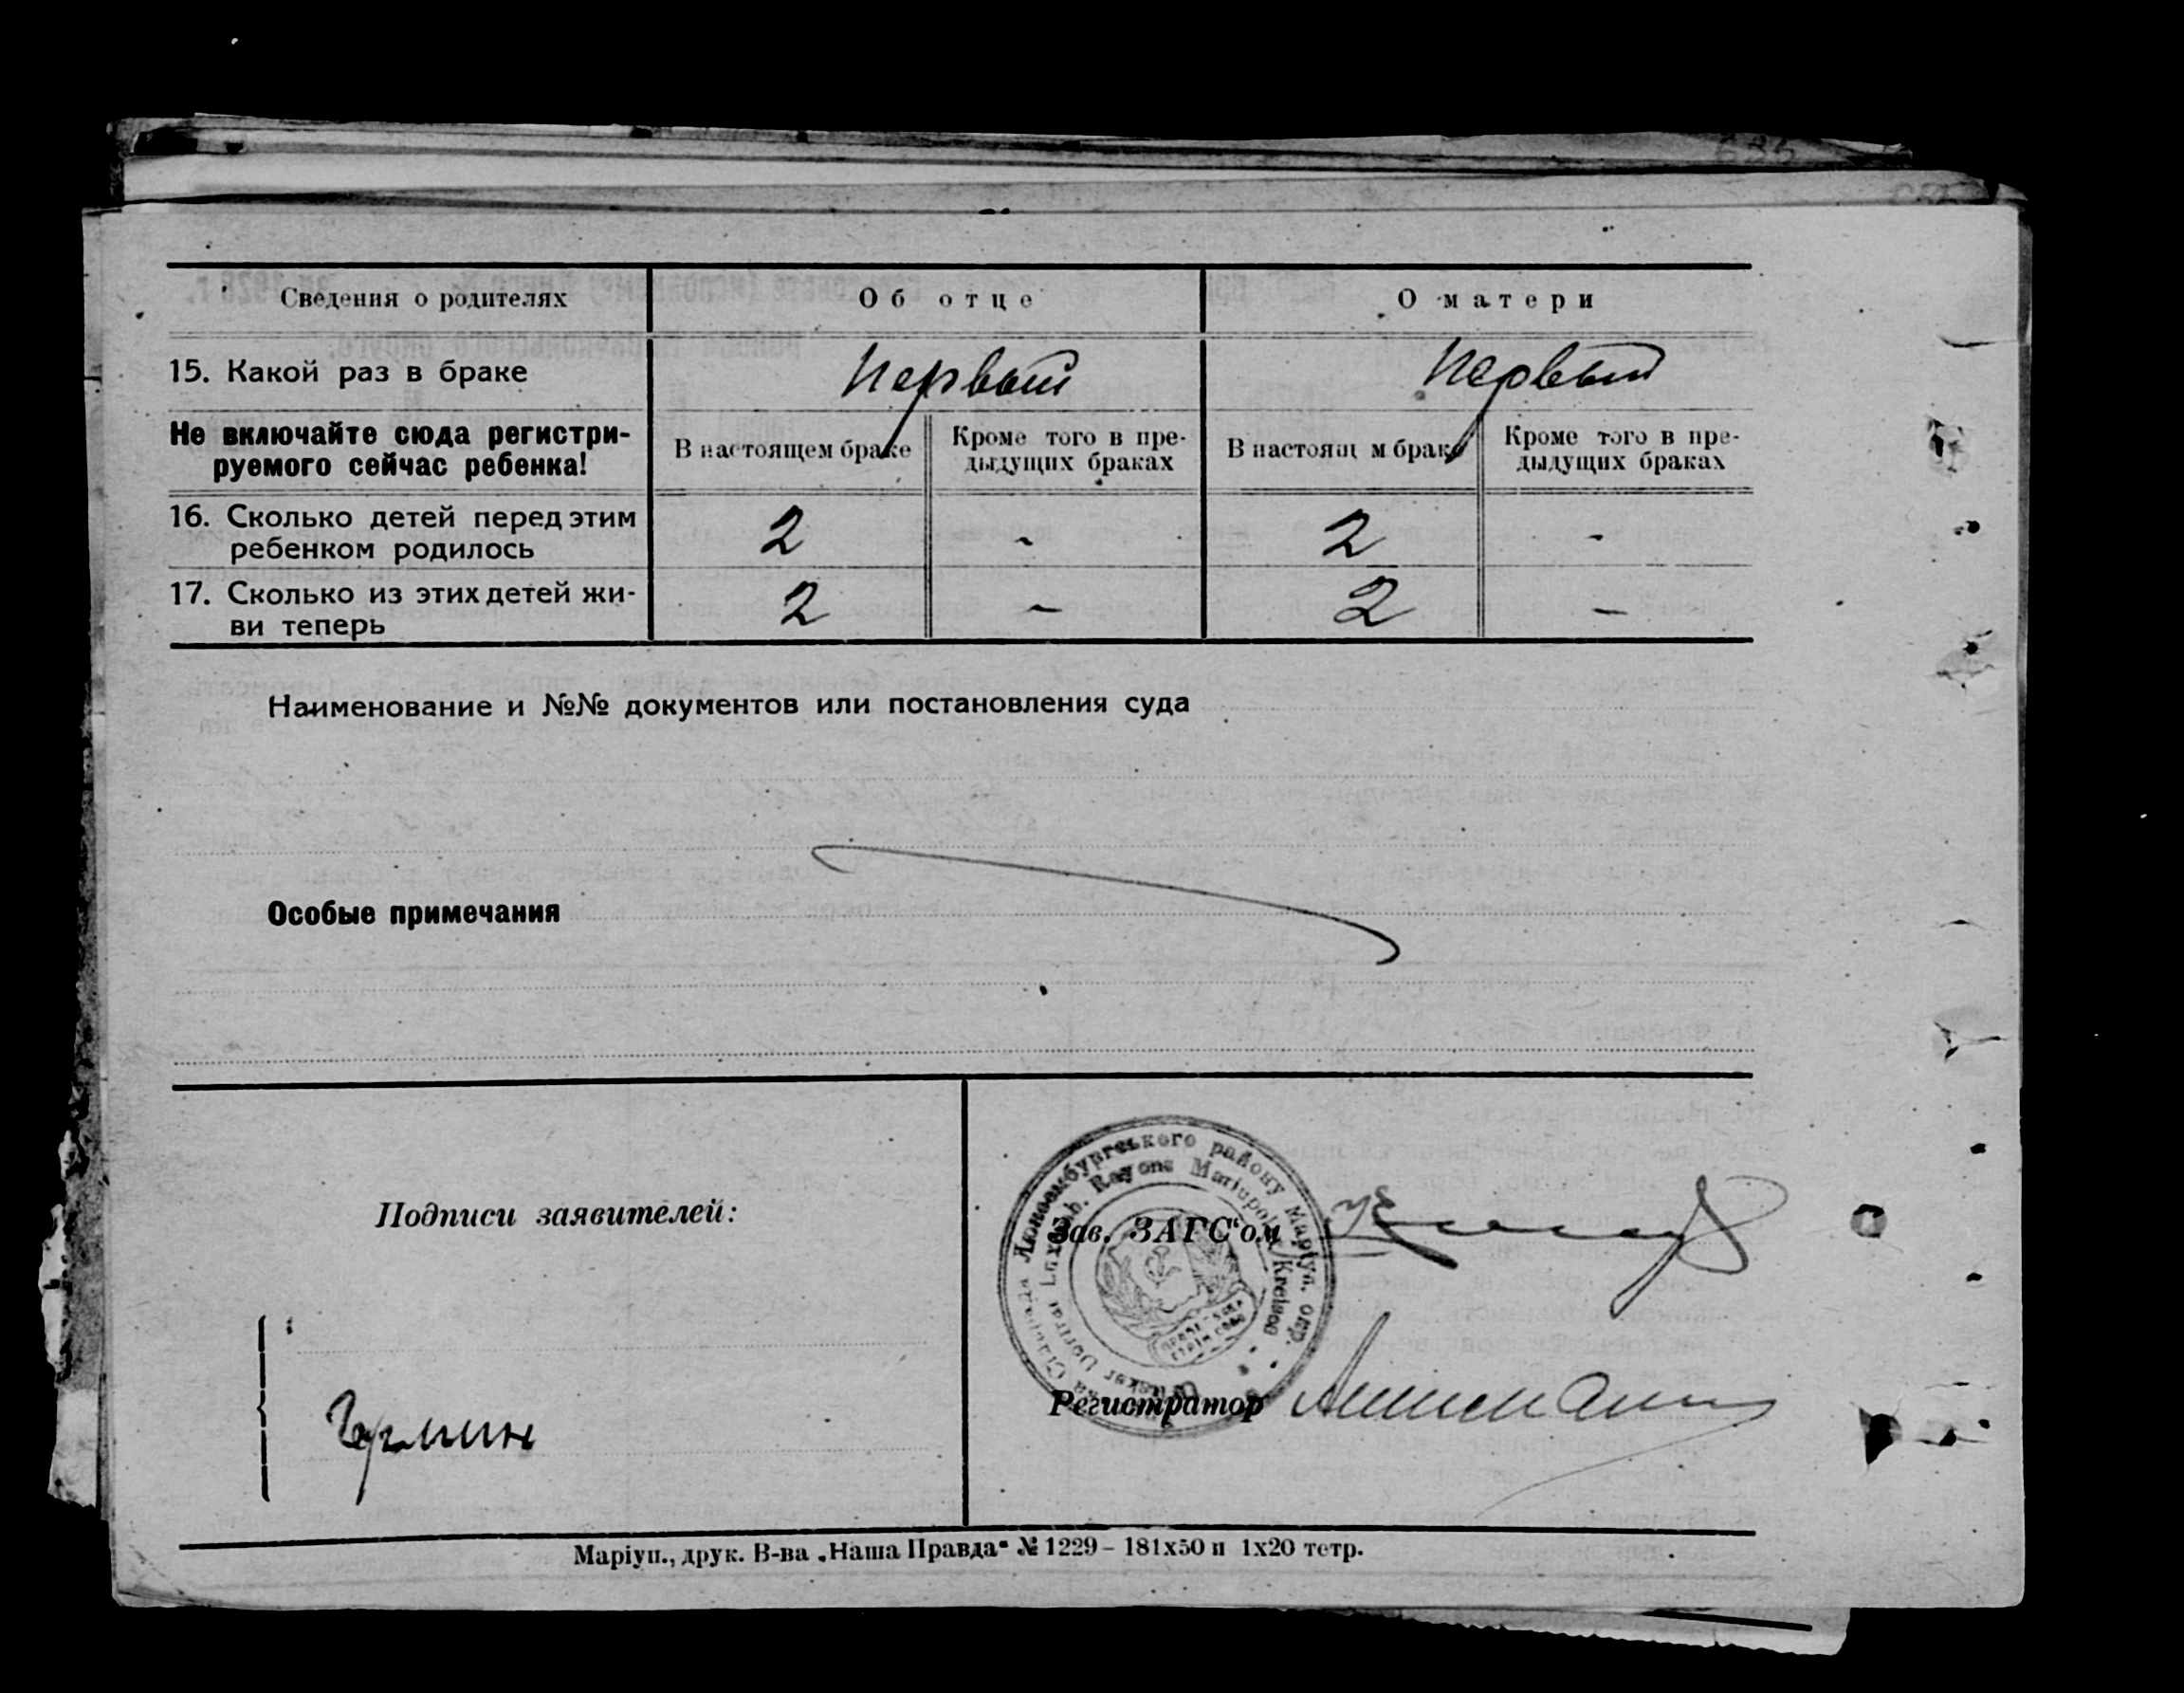 Сведения о родителях Об отце О матери
15. Какой раз в браке Первый Первый
Не включайте сюда регистри-
руемого сейчас ребенка!
В настоящем браке Кроме того в пре-
дыдущих браках
В настоящ м браке Кроме того в пре-
дыдущих браках
16. Сколько детей перед этим
ребенком родилось 2 - 2 -
17. Сколько из этих детей жи-
ви теперь 2 - 2 -
Наименование и №№ документов или постановления суда
Особые примечания
Подписи заявителей:
Зав. ЗАГС'ом
Люксембургського району Маріуп. окр.
Rayons Mariupoler Kreises
Регистратор
Маріуп., друк. В-ва „Наша Правда" № 1229 – 181х50 и 1х20 тетр.